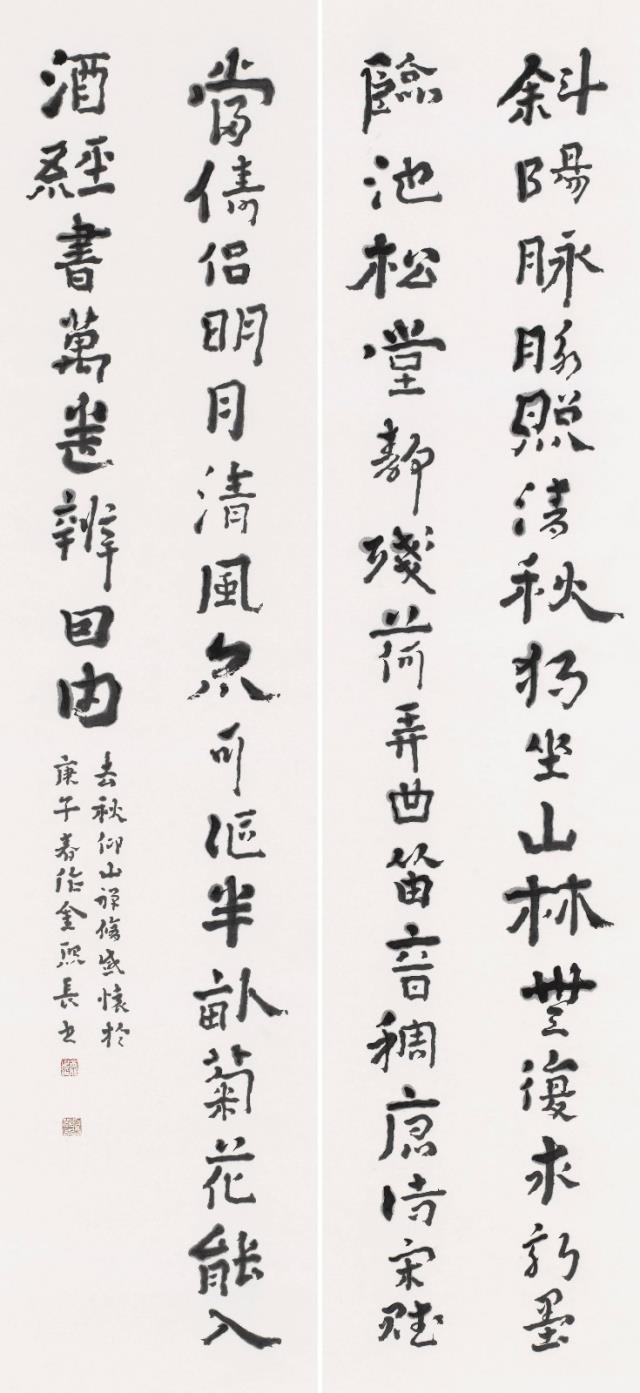 斜陽脉脉照清秋獨坐山林無復求新墨
臨池松堂靜殘荷弄曲笛音稠唐詩宋賦
當儔侶明月清風亦可謳半畝菊花能入
酒經書萬卷辨回内
去秋仰山禪修感懷於
庚子春作金熙長書